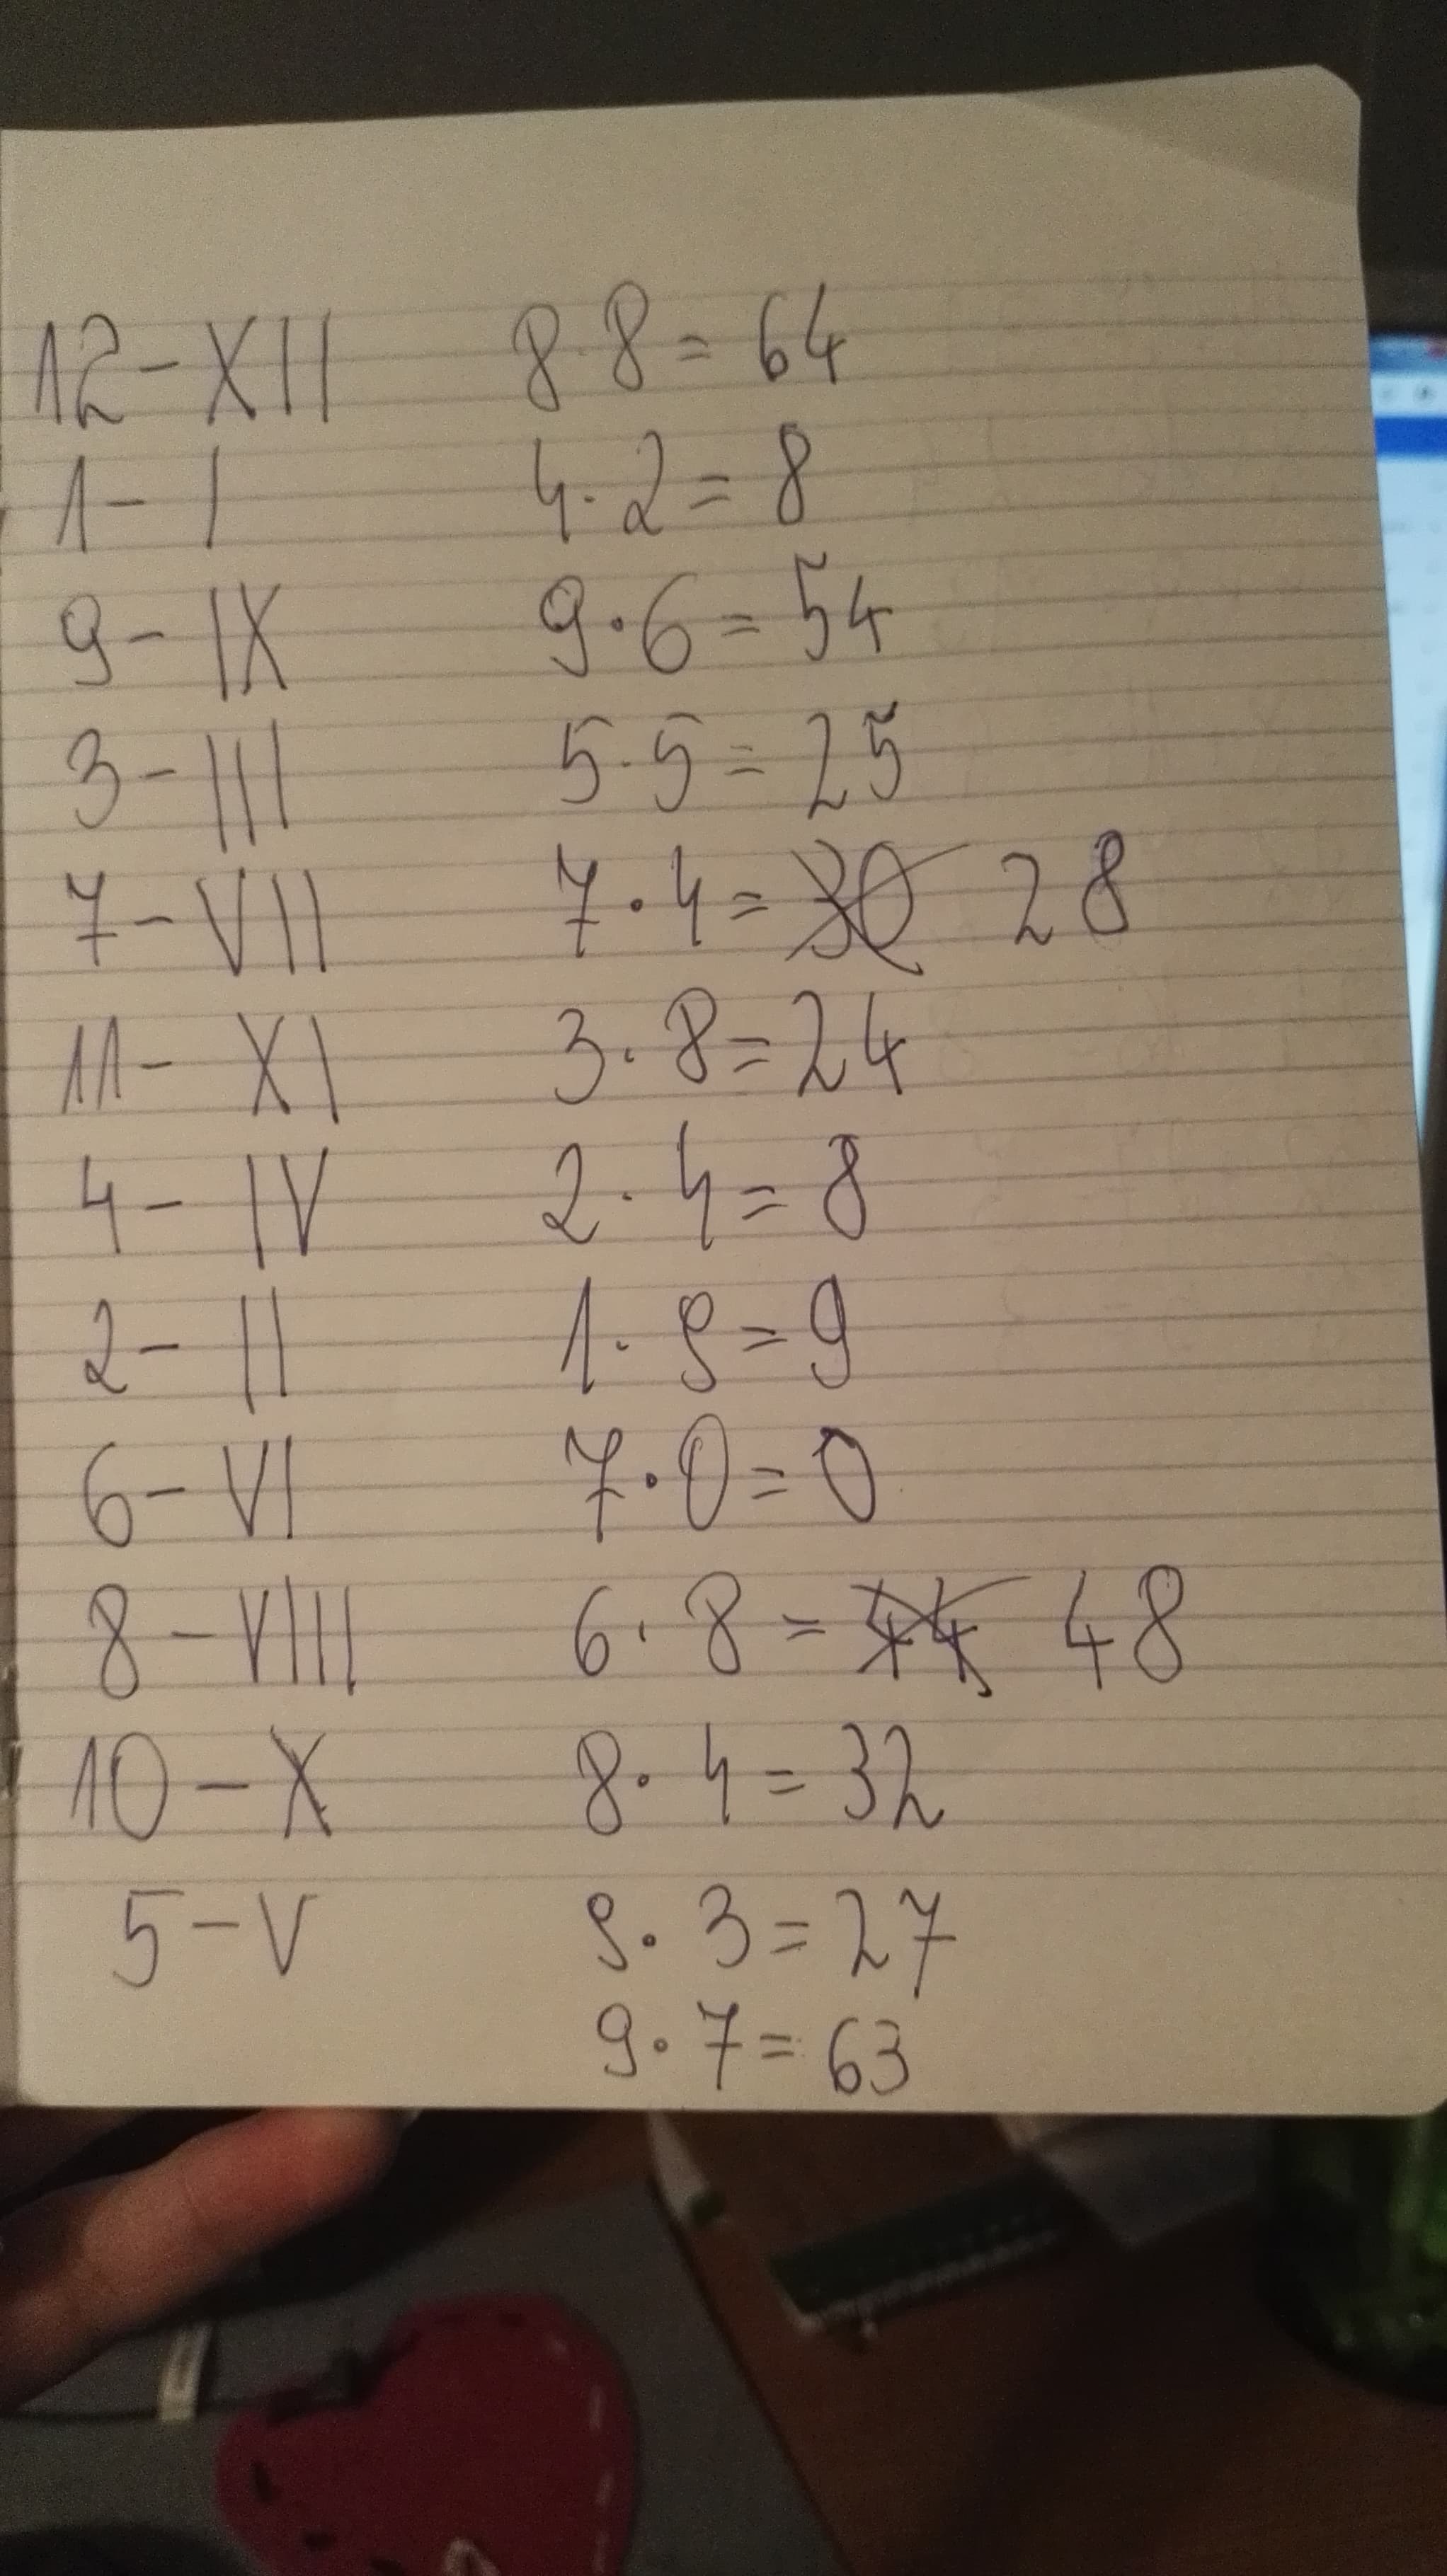 12 - XII 8·8 = 64
1 - I 4·2 = 8
9 - IX 9·6 = 54
3 - III 5·5 = 25
7 - VII 7·4 = 30 28
11 - XI 3·8 = 24
4 - IV 2·4 = 8
2 - II 1·9 = 9
6 - VI 7·0 = 0
8 - VIII 6·8 = 44 48
10 - X 8·4 = 32
5 - V 9·3 = 27
9·7 = 63